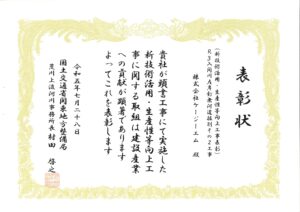 表彰状
(新技術活用・生産性等向上工事表彰)
株式会社ケージーエム 殿
貴社が頭書工事にて実施した
新技術活用・生産性等向上工
事に関する取組は建設産業
への貢献が顕著であります
よってこれを表彰します
令和五年七月二十八日
国土交通省関東地方整備局
荒川上流河川事務所長 村田 啓之